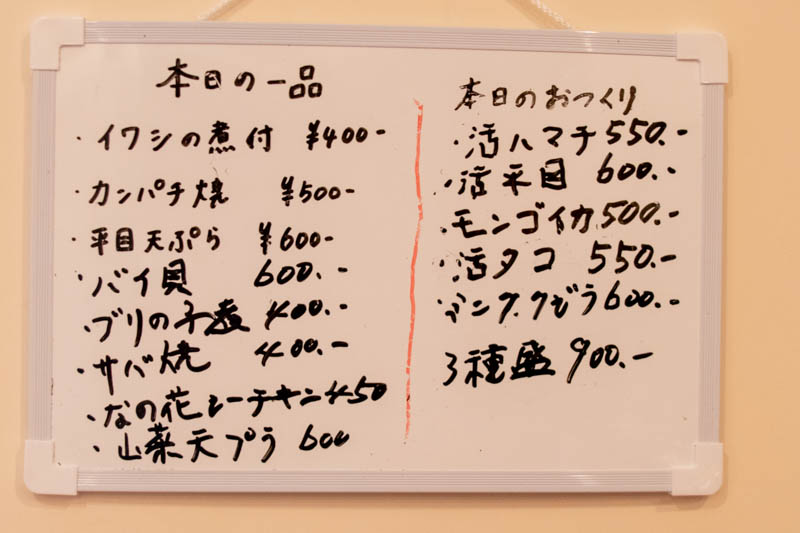 本日の一品
・イワシの煮付 ¥400-
・カンパチ焼 ¥500-
・平目天ぷら ¥600-
・バイ貝 600.-
・ブリの子煮 400.-
・サバ焼 400.-
・なの花シーチキン450
・山菜天プラ 600
本日のおつくり
・活ハマチ 550.-
・活平目 600.-
・モンゴイカ 500.-
・活タコ 550.-
・ミンククジラ 600.-
3種盛 900.-